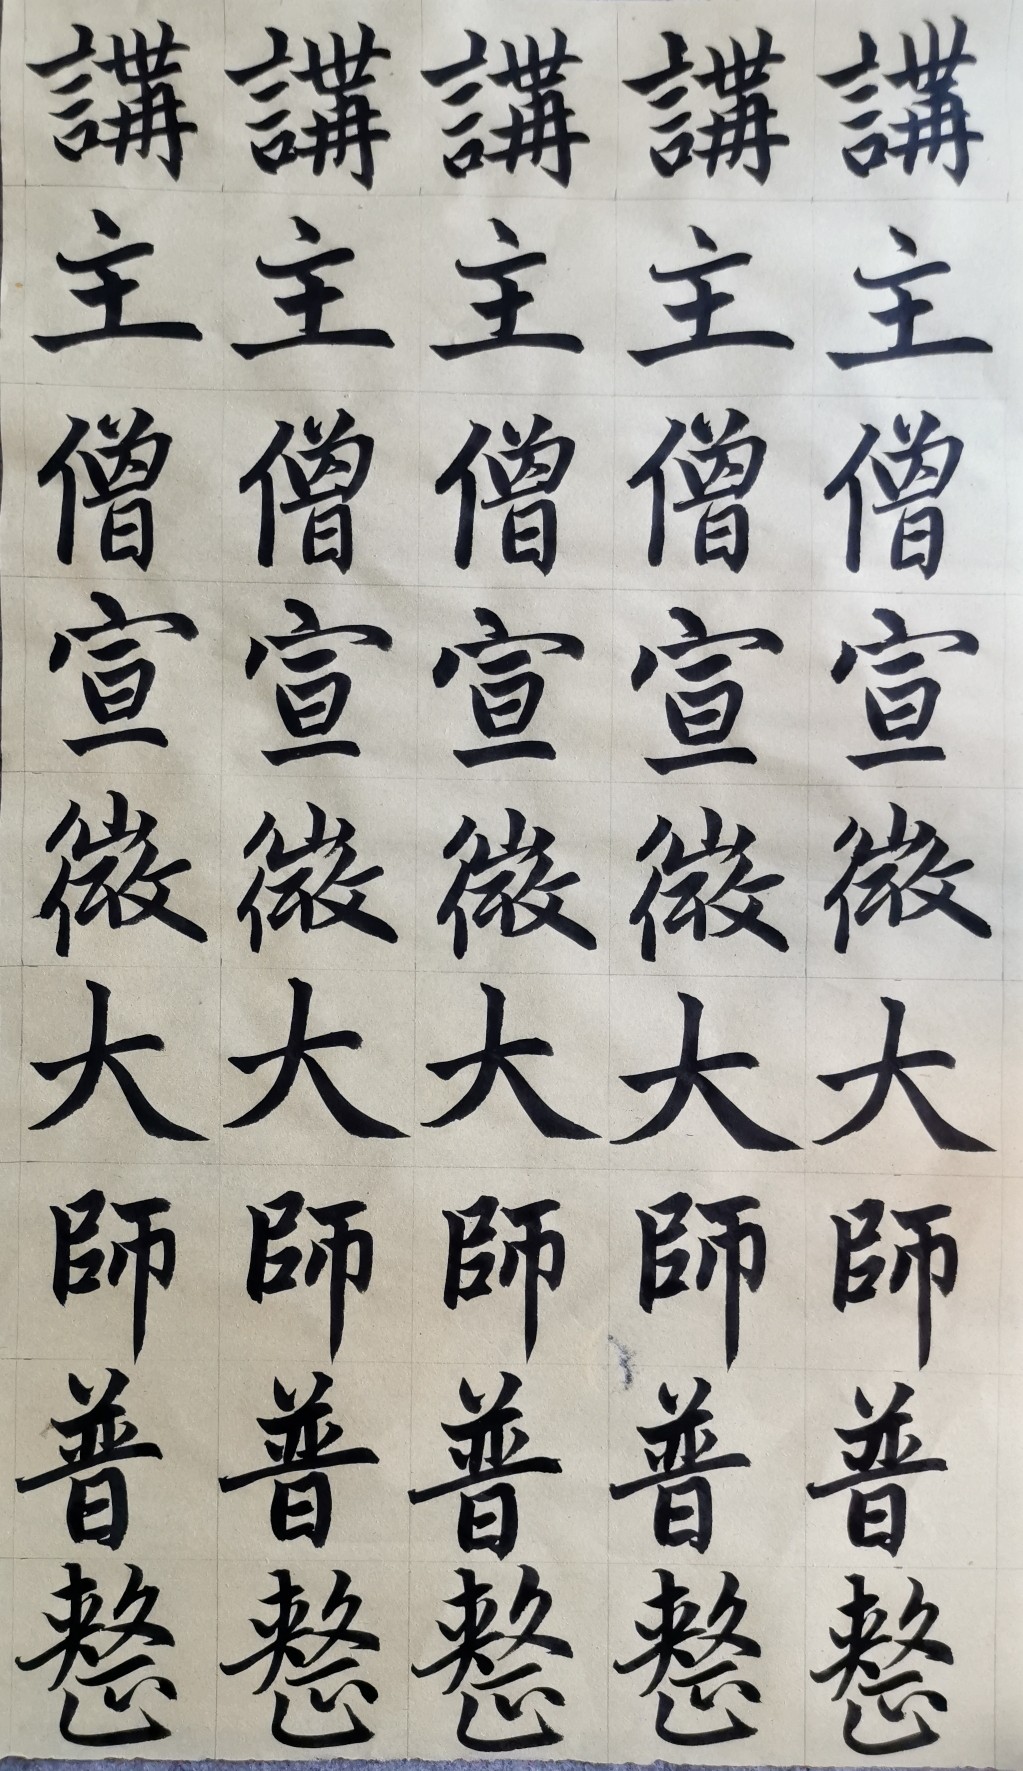 講主僧宣微大師普整
講主僧宣微大師普整
講主僧宣微大師普整
講主僧宣微大師普整
講主僧宣微大師普整